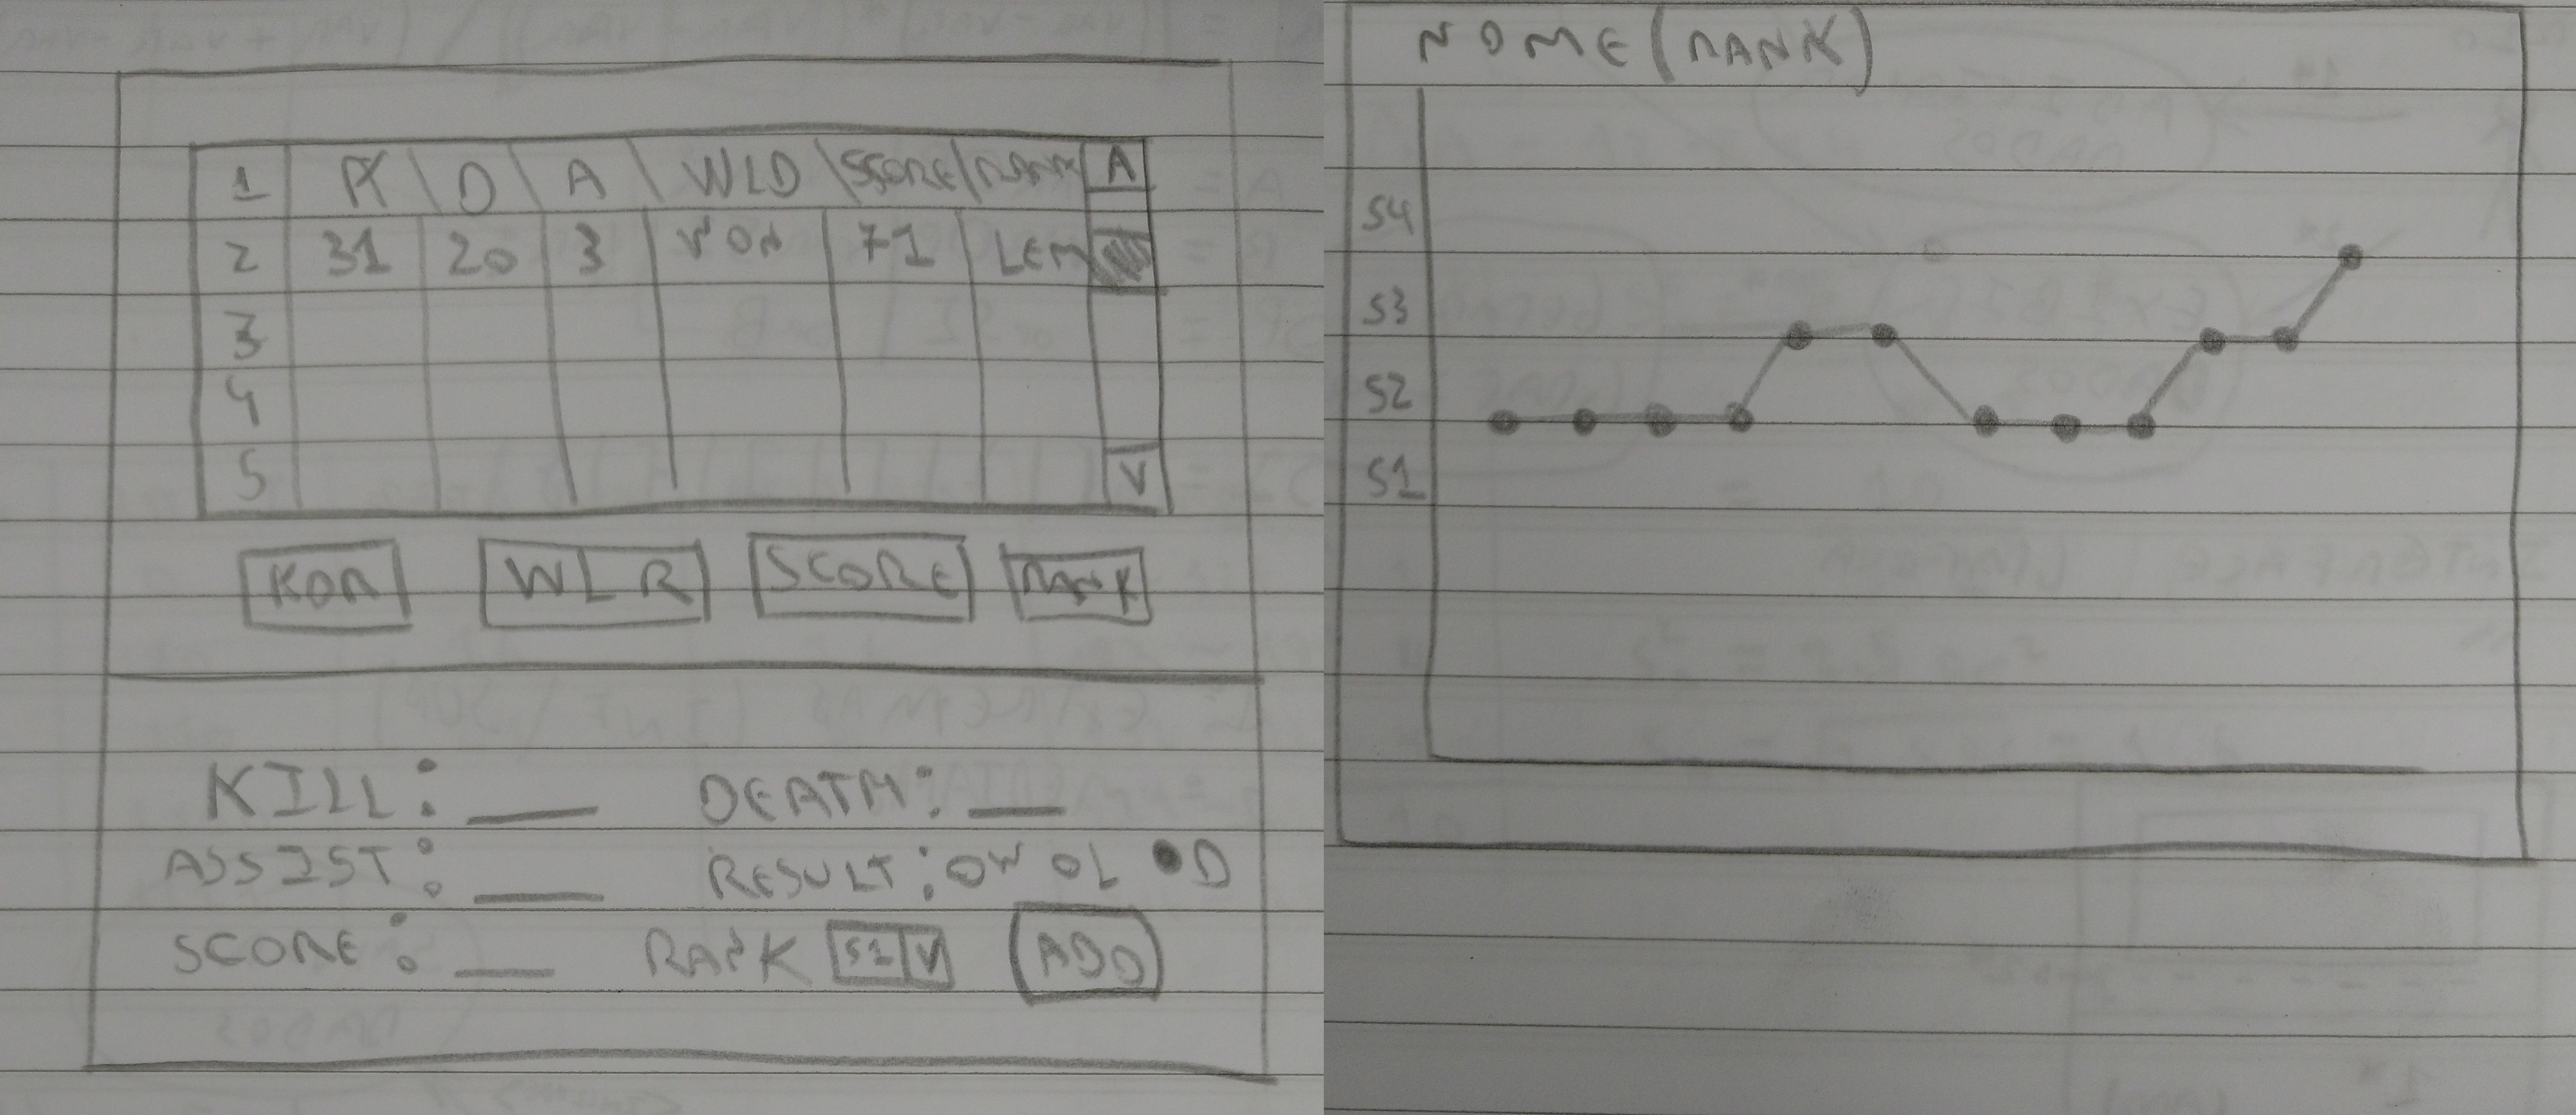 1 K D A WLD SCORE RANK A
2 31 20 3 WON 71 LEM
3
4
5 V
KDR WLR SCORE RANK
KILL: __ DEATH: __
ASSIST: __ RESULT: OW OL ●D
SCORE: __ RANK S1 V ADD
NOME (RANK)
S4
S3
S2
S1